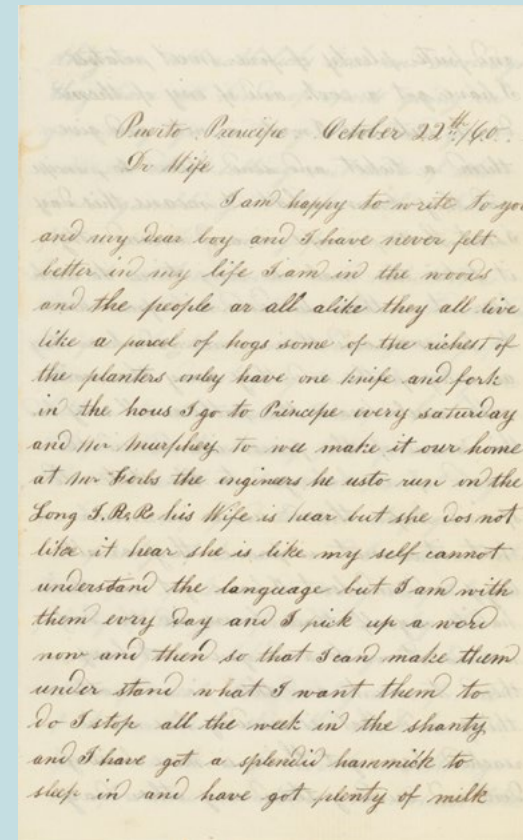 Puerto Principe October 22th/60.
Dr Wife
I am happy to write to you
and my dear boy and I have never felt
better in my life I am in the woods
and the people ar all alike they all live
like a parcel of hogs some of the richest of
the planters onley have one knife and fork
in the hous I go to Principe every saturday
and Mr Murphey to wee make it our home
at Mr Forbs the engineers he usto run on the
Long I.R.R. his Wife is hear but she dos not
like it hear she is like my self cannot
understand the language but I am with
them evry day and I pick up a word
now and then so that I can make them
under stand what I want them to
do I stop all the week in the shanty
and I have got a splendid hammick to
sleep in and have got plenty of milk